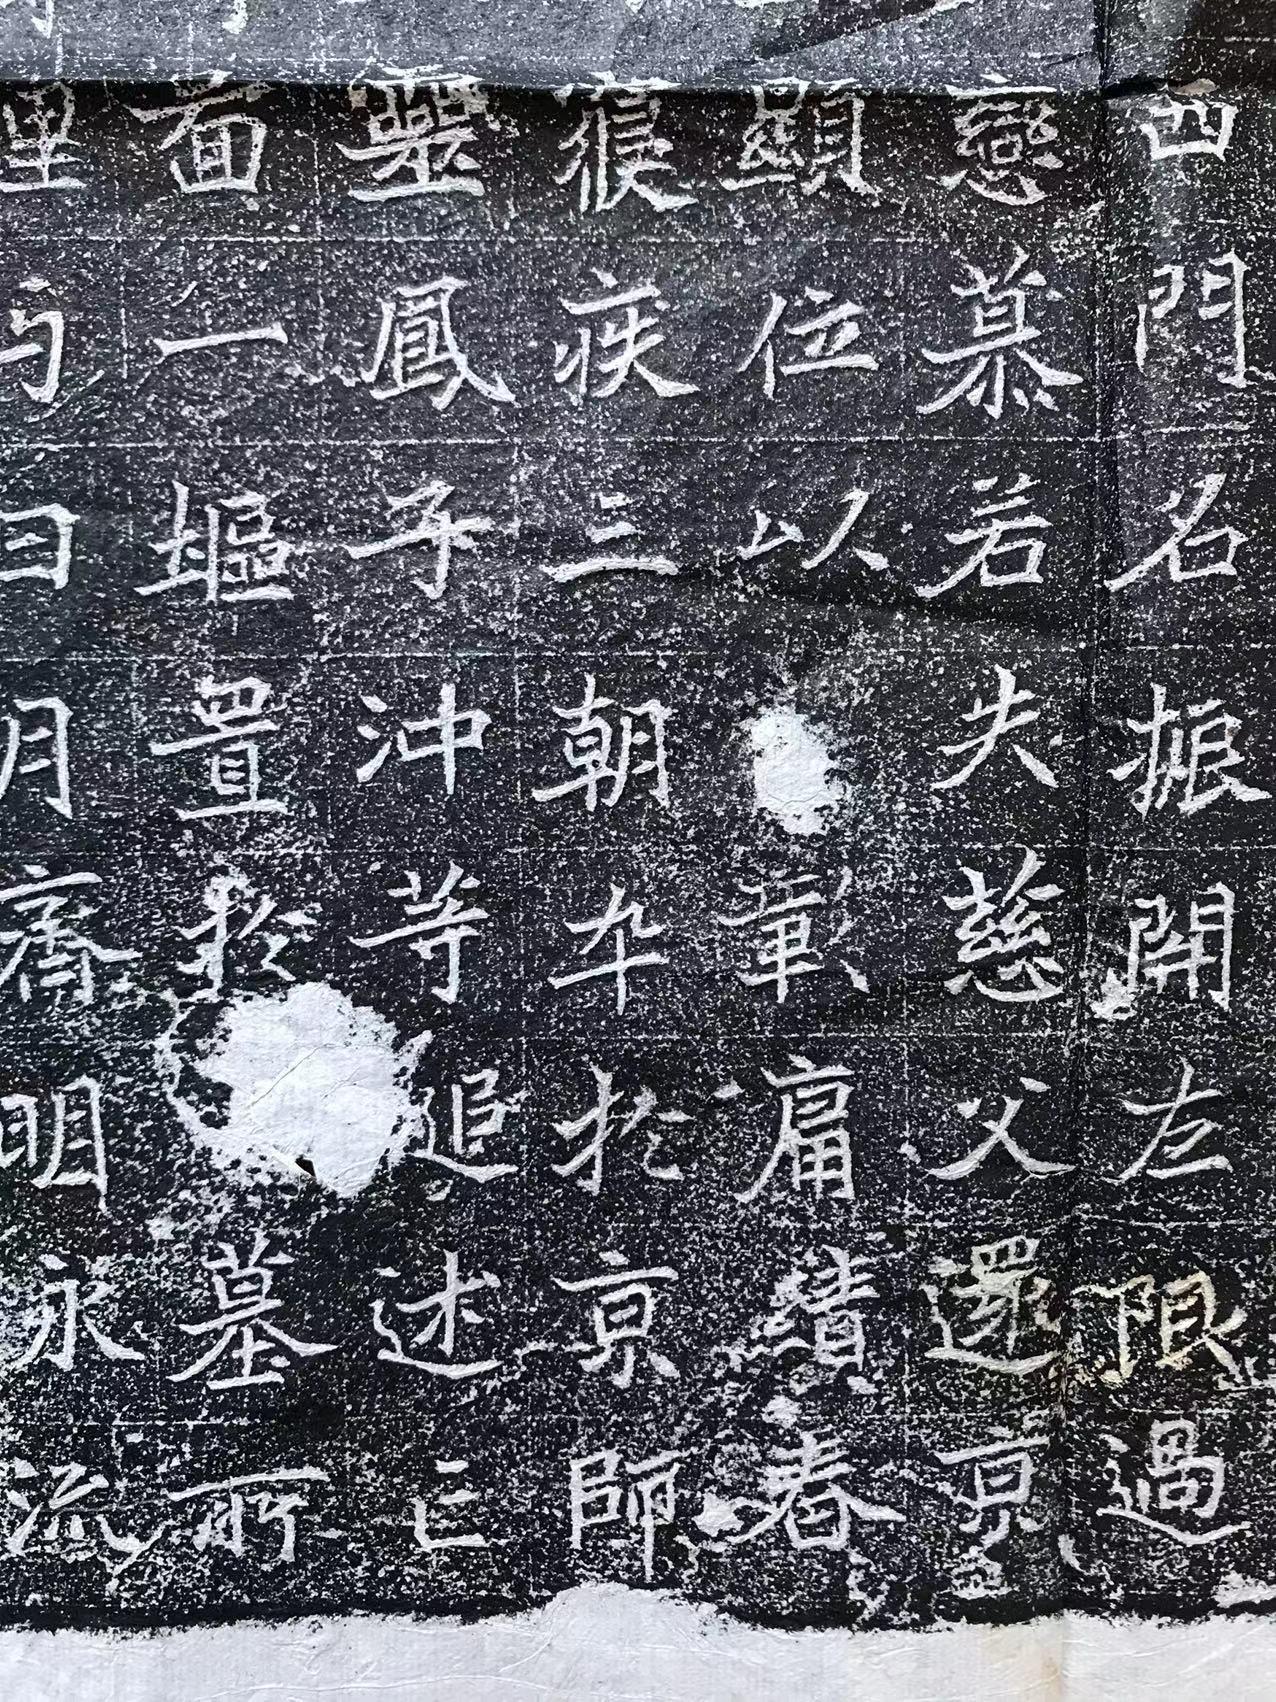 西門名振開左限過
戀慕若失慈父還京
顯位以彰庸績春
復疾三朝卒於京師
鳳子沖等追述亡
面一塸置於墓所
里与日月齊明永流